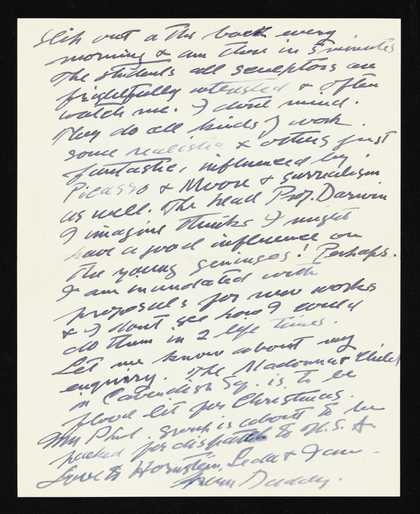 slip out at the back every
morning & am there in 5 minutes
The students all sculptors are
frightfully interested & often
watch me. I don't mind.
They do all kinds of work.
some realistic & others just
fantastic, influenced by
Picasso & Moore & surrealism
as well. The head Prof. Darwin
I imagine thinks I might
have a good influence on
the young geniuses! Perhaps.
I am inundated with
proposals for new works
& I don't see how I could
do them in 2 life times.
Let me know about my
enquiry. The Madonna & Child
in Cavendish Sq. is to be
flood lit for Christmas.
My Phil. group is about to be
packed for dispatch to U.S.A.
Love to Hornstein, Leda & Jane
from Daddy.